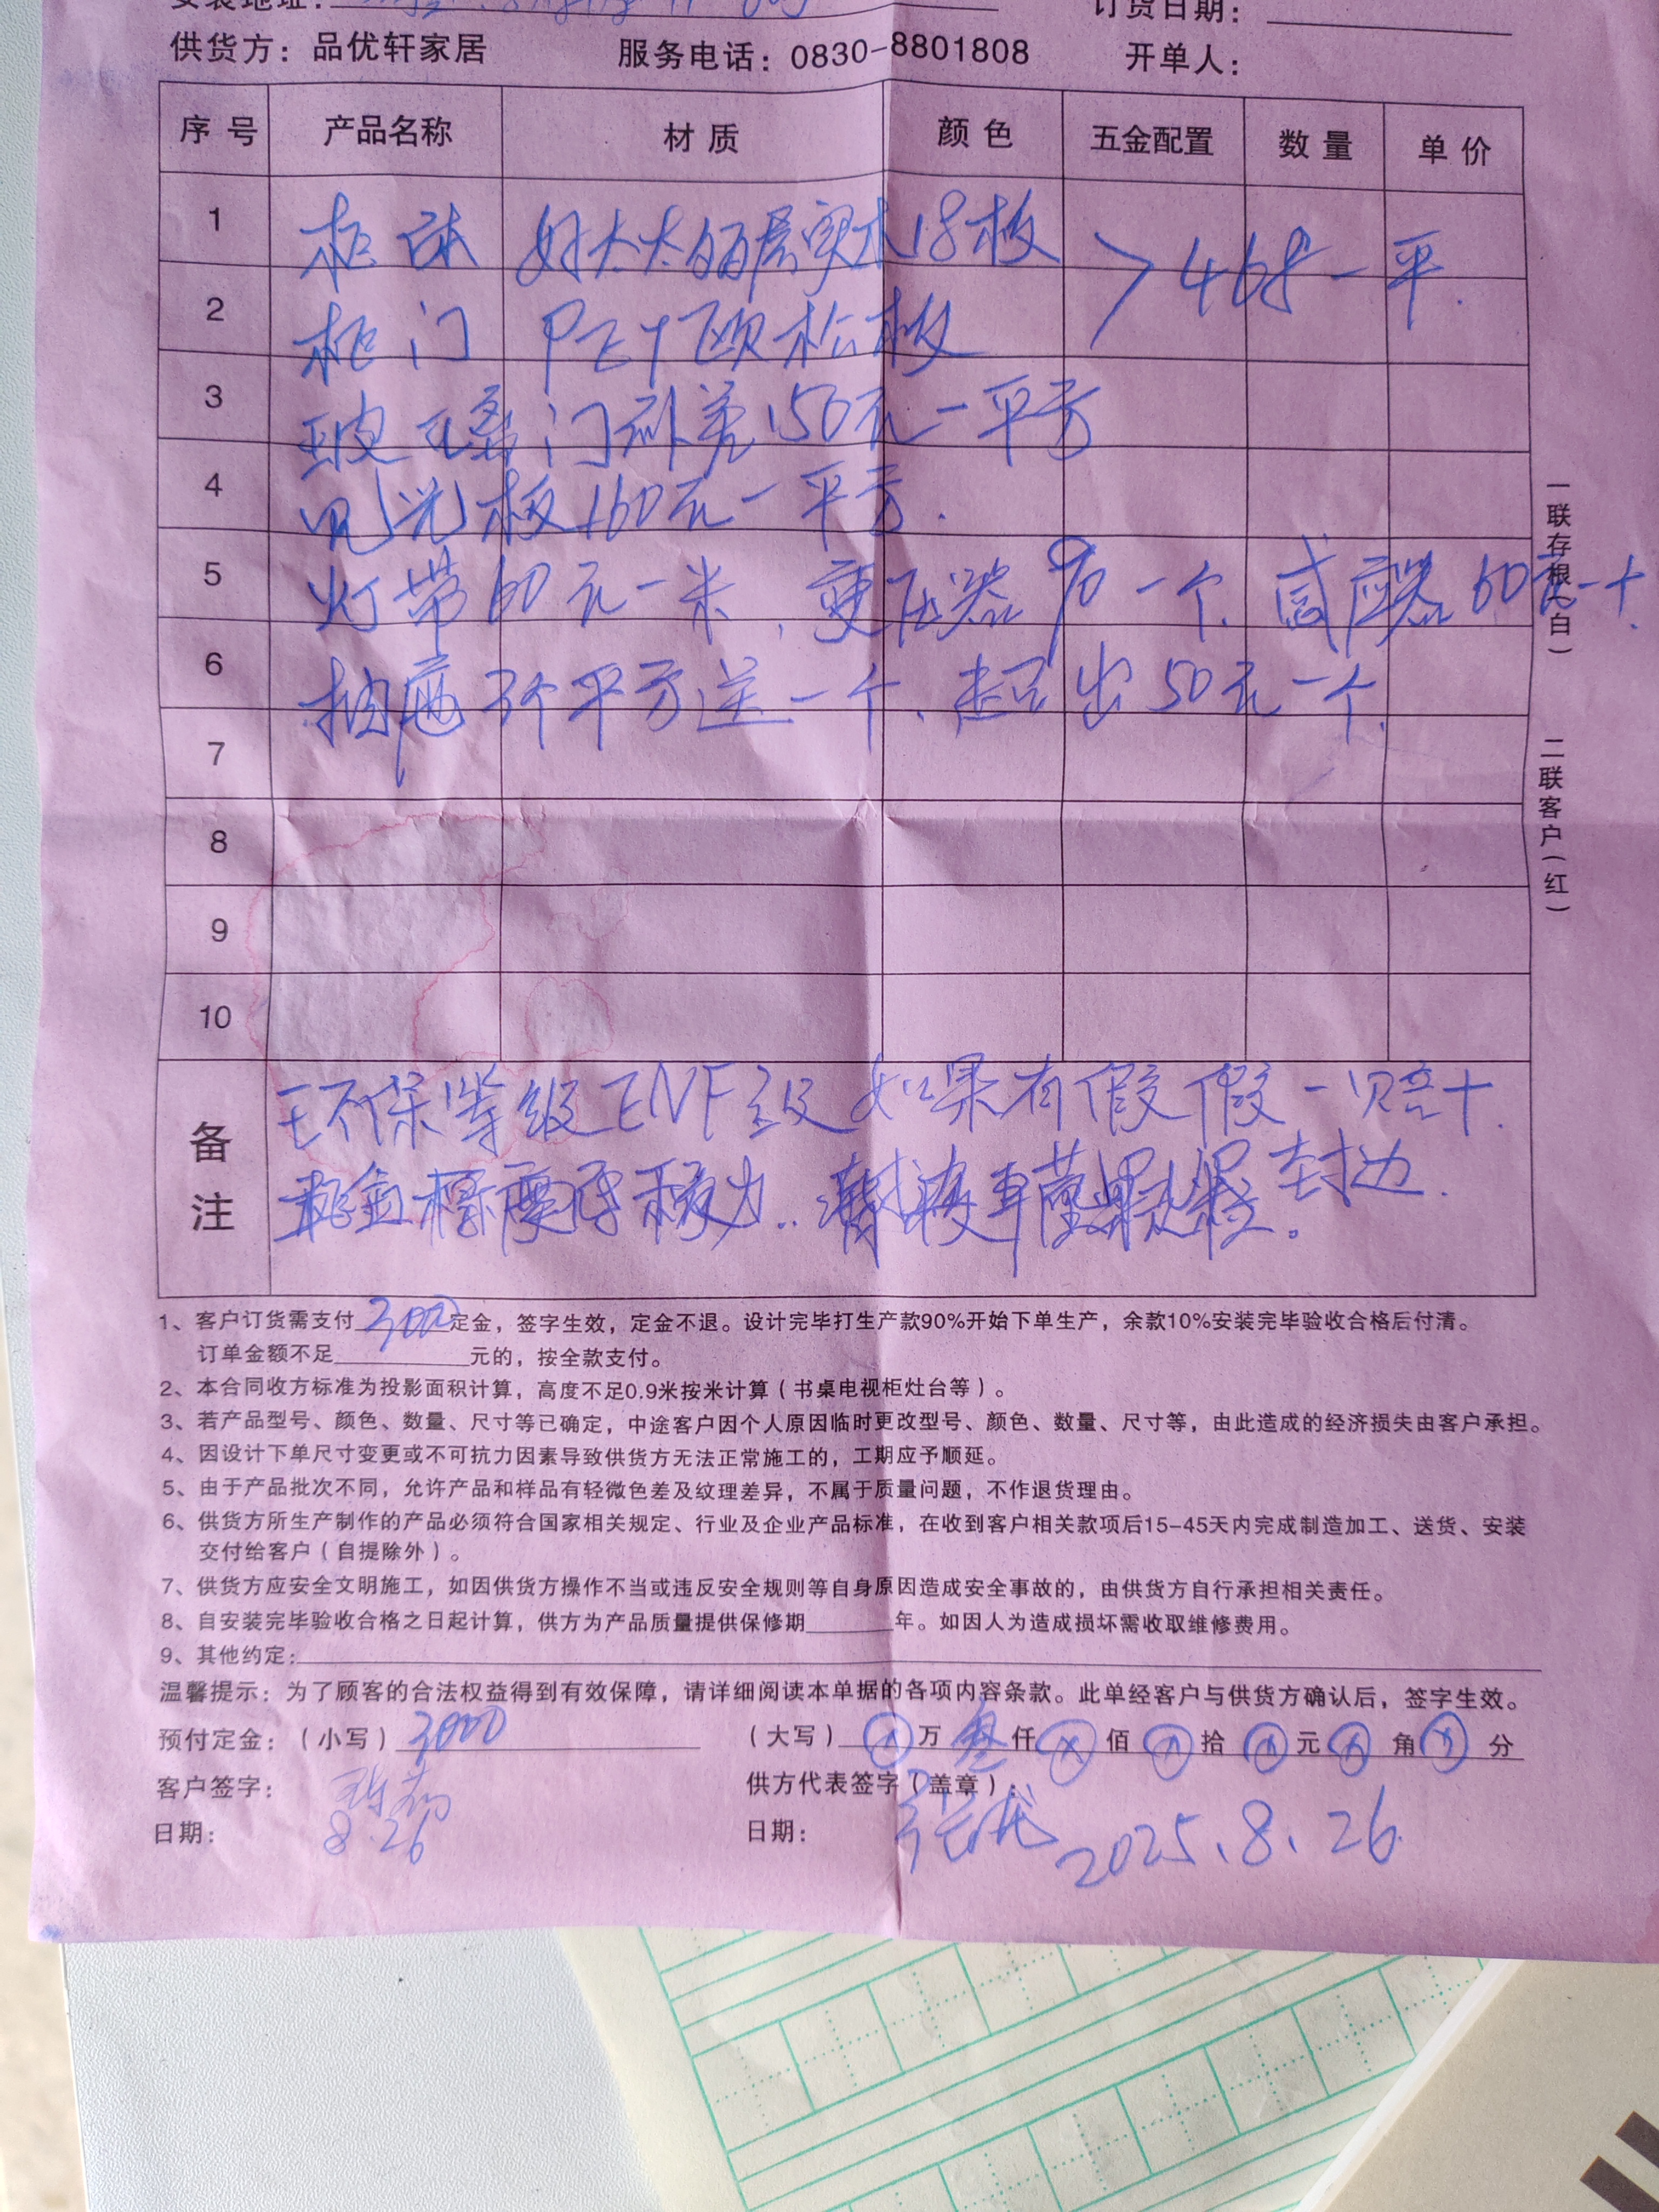 安装地址：
订货日期：
供货方：品优轩家居 服务电话：0830-8801808 开单人：
序号 产品名称 材质 颜色 五金配置 数量 单价
1 柜体 好太太的百层实木18板
2 柜门 PET欧松板 >468一平.
3 玻璃门补差150元一平方
4 见光板160元一平方.
5 灯带60元一米、变压器90一个、感应器60元一个.
6 抽屉3个平方送一个、超出50元一个.
7
8
9
10
一联存根（白）
二联客户（红）
备注
环保等级ENF级如果有假假一赔十.
封边.
1、客户订货需支付3000定金，签字生效，定金不退。设计完毕打生产款90%开始下单生产，余款10%安装完毕验收合格后付清。
订单金额不足 元的，按全款支付。
2、本合同收方标准为投影面积计算，高度不足0.9米按米计算（书桌电视柜灶台等）。
3、若产品型号、颜色、数量、尺寸等已确定，中途客户因个人原因临时更改型号、颜色、数量、尺寸等，由此造成的经济损失由客户承担。
4、因设计下单尺寸变更或不可抗力因素导致供货方无法正常施工的，工期应予顺延。
5、由于产品批次不同，允许产品和样品有轻微色差及纹理差异，不属于质量问题，不作退货理由。
6、供货方所生产制作的产品必须符合国家相关规定、行业及企业产品标准，在收到客户相关款项后15-45天内完成制造加工、送货、安装
交付给客户（自提除外）。
7、供货方应安全文明施工，如因供货方操作不当或违反安全规则等自身原因造成安全事故的，由供货方自行承担相关责任。
8、自安装完毕验收合格之日起计算，供方为产品质量提供保修期 年。如因人为造成损坏需收取维修费用。
9、其他约定:
温馨提示：为了顾客的合法权益得到有效保障，请详细阅读本单据的各项内容条款。此单经客户与供货方确认后，签字生效。
预付定金：（小写）3000 （大写）ⓧ万叁仟ⓧ佰ⓧ拾ⓧ元ⓧ角ⓧ分
客户签字： 供方代表签字（盖章）：张龙
日期： 8.26 日期： 2025.8.26